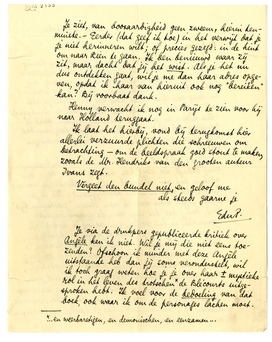 Je ziet, van boosaardigheid geen zweem, hierin ken-
nis die - Zeker (dat geef ik toe) in het verwijt dat je
niet herinneren wilt; of precies gezegd: in de hint
om naar Rien te gaan. Ik ben benieuwd waar zij
zit, maar dacht dat jij het wist. Als je het nu
dus ontdekken gaat, wil je me dan haar adres opge-
ven, opdat ik haar van hieruit ook nog "bereiken"
kan? Bij voorbaat dank.
Henny verwacht ik nog in Parijs te zien vóór hij
naar Holland teruggaat.
Ik laat het hierbij, vond bij terugkomst hier
allerlei verzuurde plichten die schreeuwen om
betrachting - om de beeldspraak goed stout te maken,
zooals dr. Hendriks van den grooten auteur
Ivans zegt.
Vergeet den bundel niet, en geloof me
als steeds gaarne je
EduP.
Je via de drukpers gepubliceerde kritiek over
Angèle ken ik niet. Wil je mij die niet eens toe-
zenden? Ofschoon ik minder met deze Angèle
uitstaande heb dan jij soms veronderstelt, wil
ik toch graag weten hoe je je over haar ± mystieke
rol in het leven des dorschen Blécourts uitge-
sproken hebt. Ik voel voor de bedoeling van dat
boek, ook waar ik om de personages lachen moet.
...en weerbarstigen, en demonischen, en eenzamen...